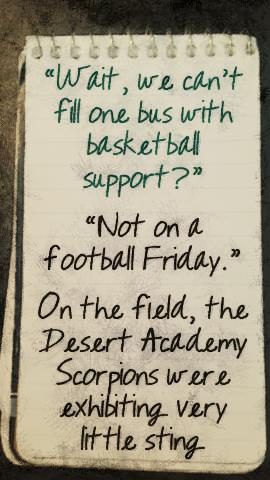 “Wait, we can’t
fill one bus with
basketball
support?”
“Not on a
football Friday.”
On the field, the
Desert Academy
Scorpions were
exhibiting very
little sting